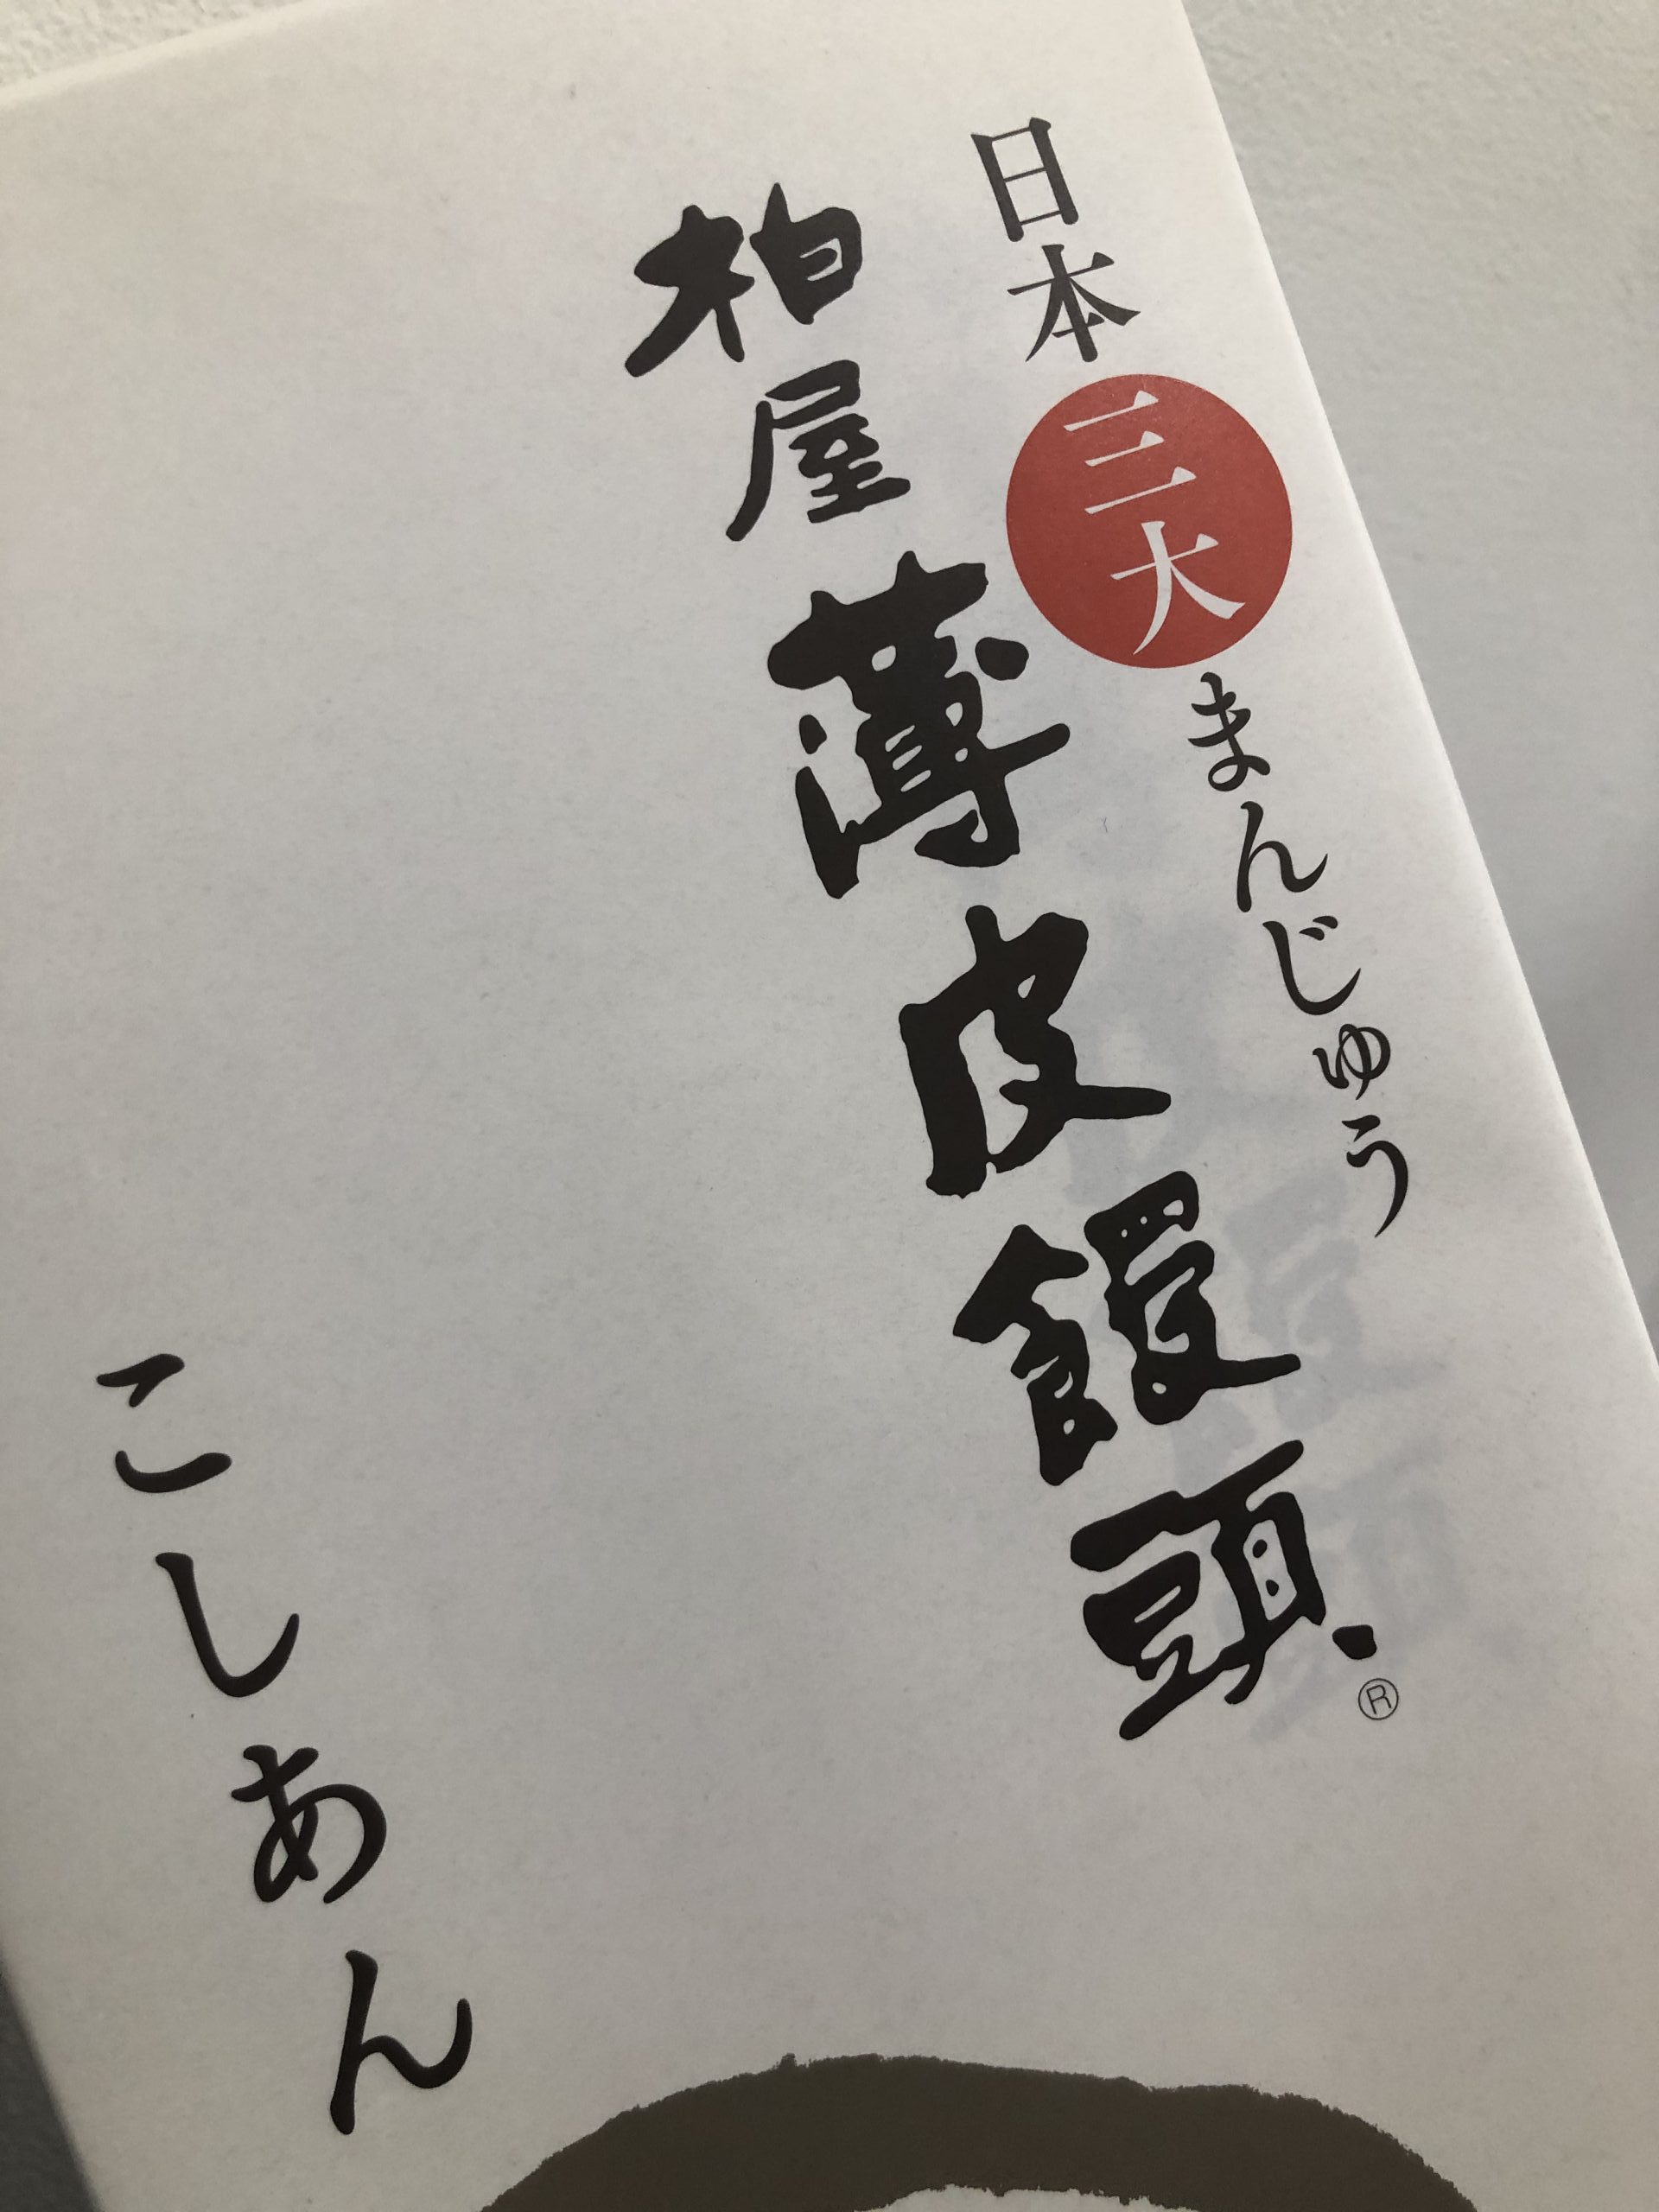 日本三大まんじゅう
柏屋薄皮饅頭®
こしあん